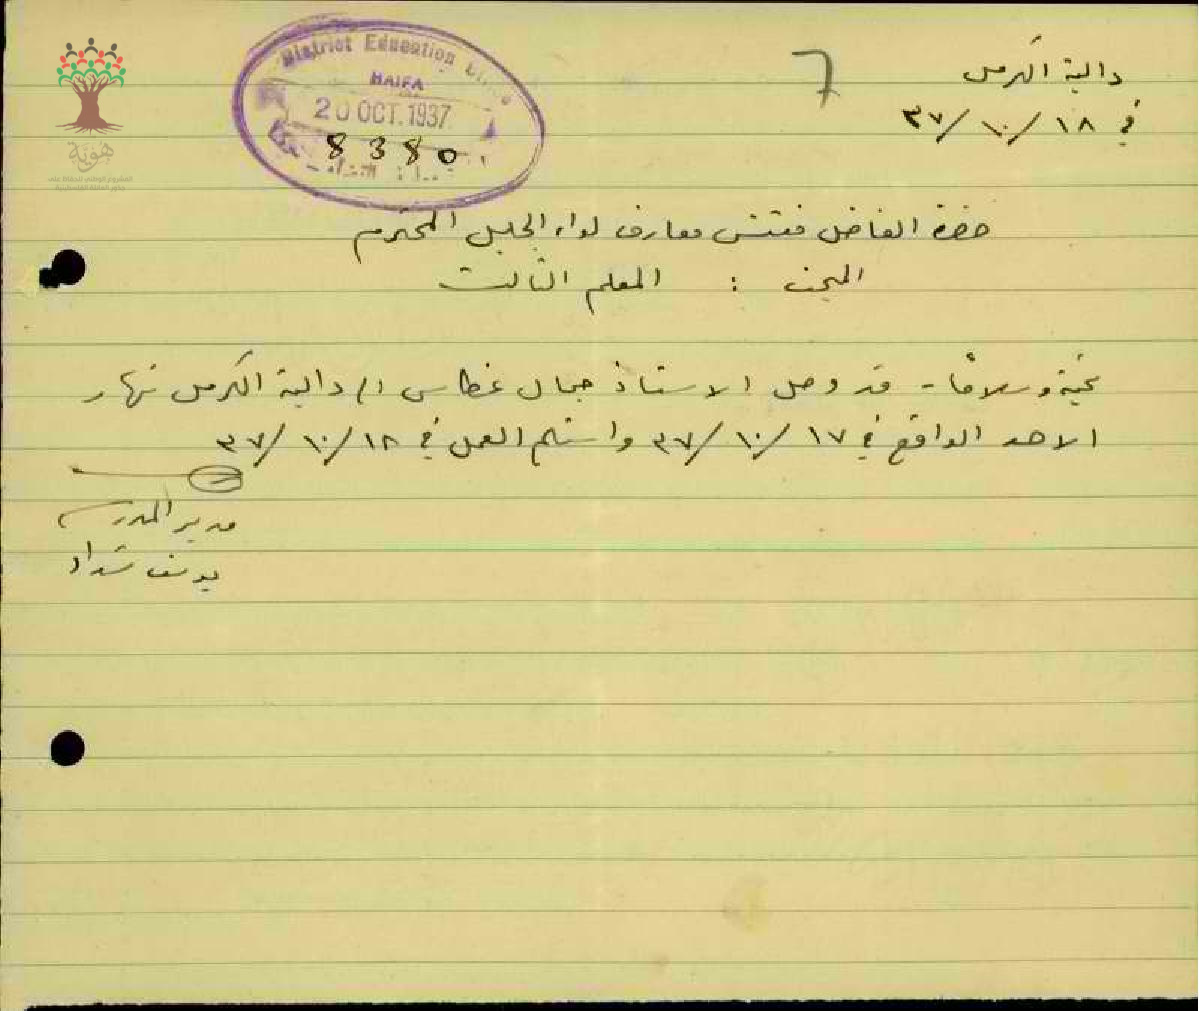 دالية الكرمل
في ١٨/١٠/٣٧
7
District Education Office
HAIFA
20 OCT. 1937
8380
هوية
حضرة الفاضل مفتش معارف لواء الجليل المحترم
المبحث : المعلم الثالث
تحية وسلامًا - قد وصل الاستاذ جمال غطاس الى دالية الكرمل نهار
الاحد الواقع في ١٧/١٠/٣٧ واستلم العمل في ١٨/١٠/٣٧
مدير المدرسة
يوسف شداد